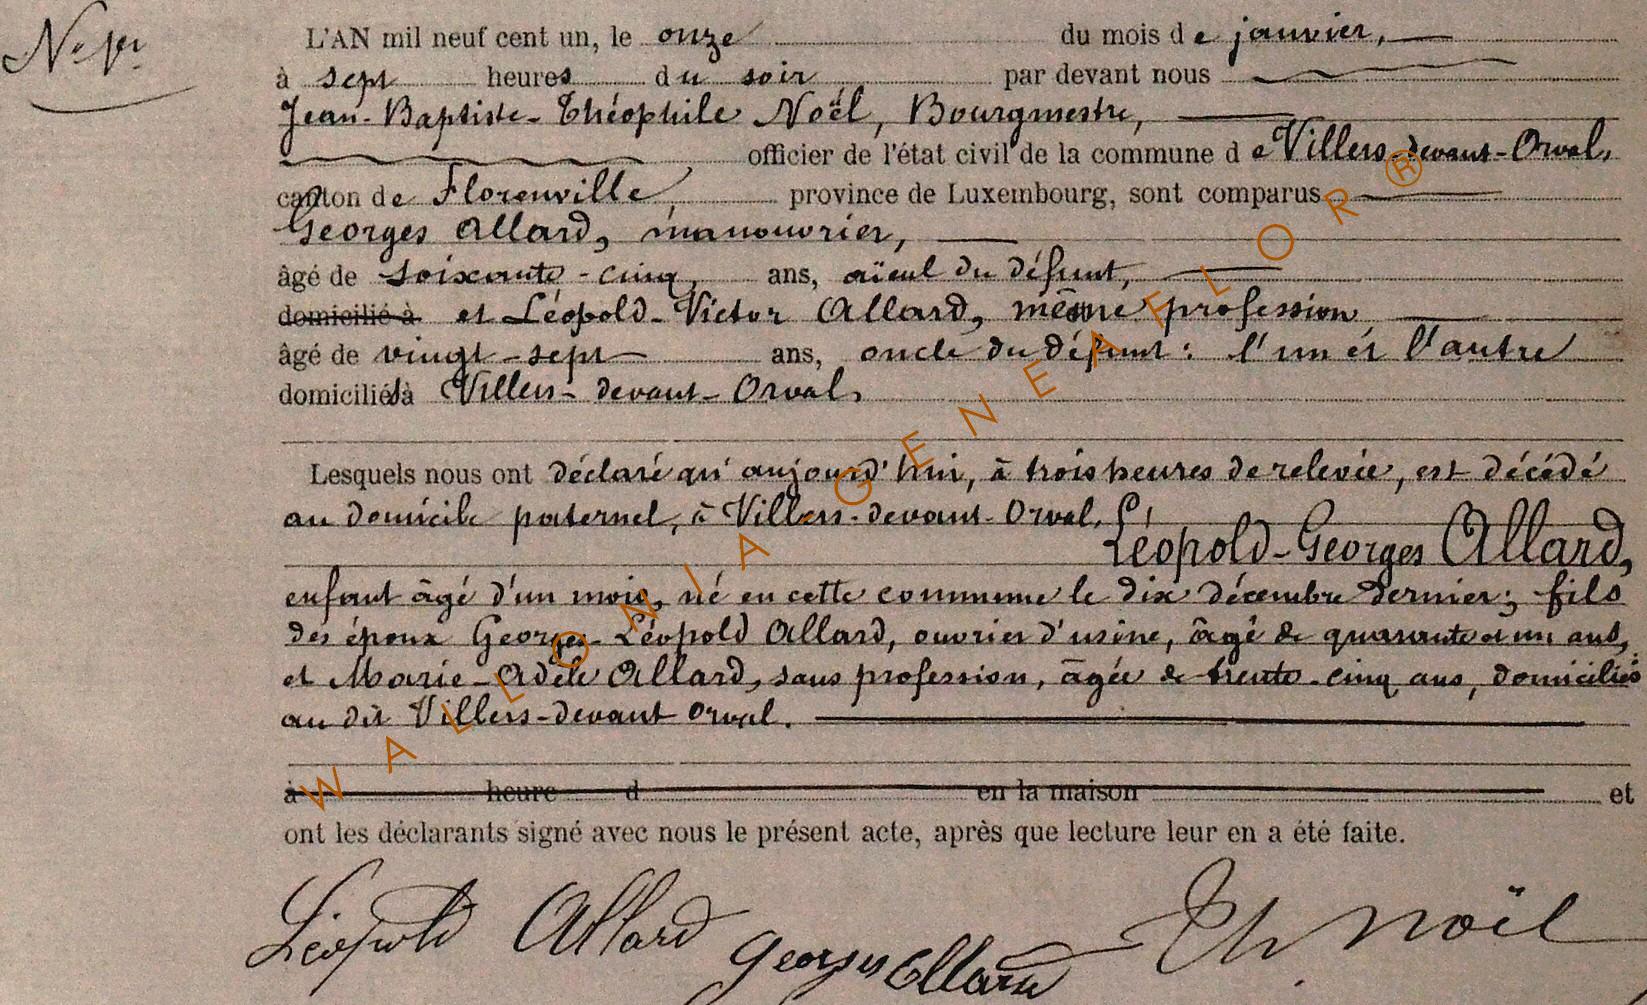 N° 1er
L'AN mil neuf cent un, le onze du mois de janvier,
à sept heures du soir par devant nous
Jean-Baptiste-Théophile Noël, Bourgmestre,
officier de l'état civil de la commune de Villers-devant-Orval,
canton de Florenville, province de Luxembourg, sont comparus
Georges Allard, manouvrier,
âgé de soixante-cinq, ans, aïeul du défunt,
domicilié à et Léopold-Victor Allard, même profession
âgé de vingt-sept ans, oncle du défunt : l'un et l'autre
domiciliés à Villers-devant-Orval.
Lesquels nous ont déclaré qu'aujourd'hui, à trois heures de relevée, est décédé
au domicile paternel, à Villers-devant-Orval,
Léopold-Georges Allard,
enfant âgé d'un mois, né en cette commune le dix décembre dernier; fils
des époux Georges-Léopold Allard, ouvrier d'usine, âgé de quarante et un ans,
et Marie-Adèle Allard, sans profession, âgée de trente-cinq ans, domiciliés
au dit Villers-devant Orval.
à heure d en la maison et
ont les déclarants signé avec nous le présent acte, après que lecture leur en a été faite.
Léopold Allard Georges Allard Th Noël
WALLONIA-GENEAFLOR®